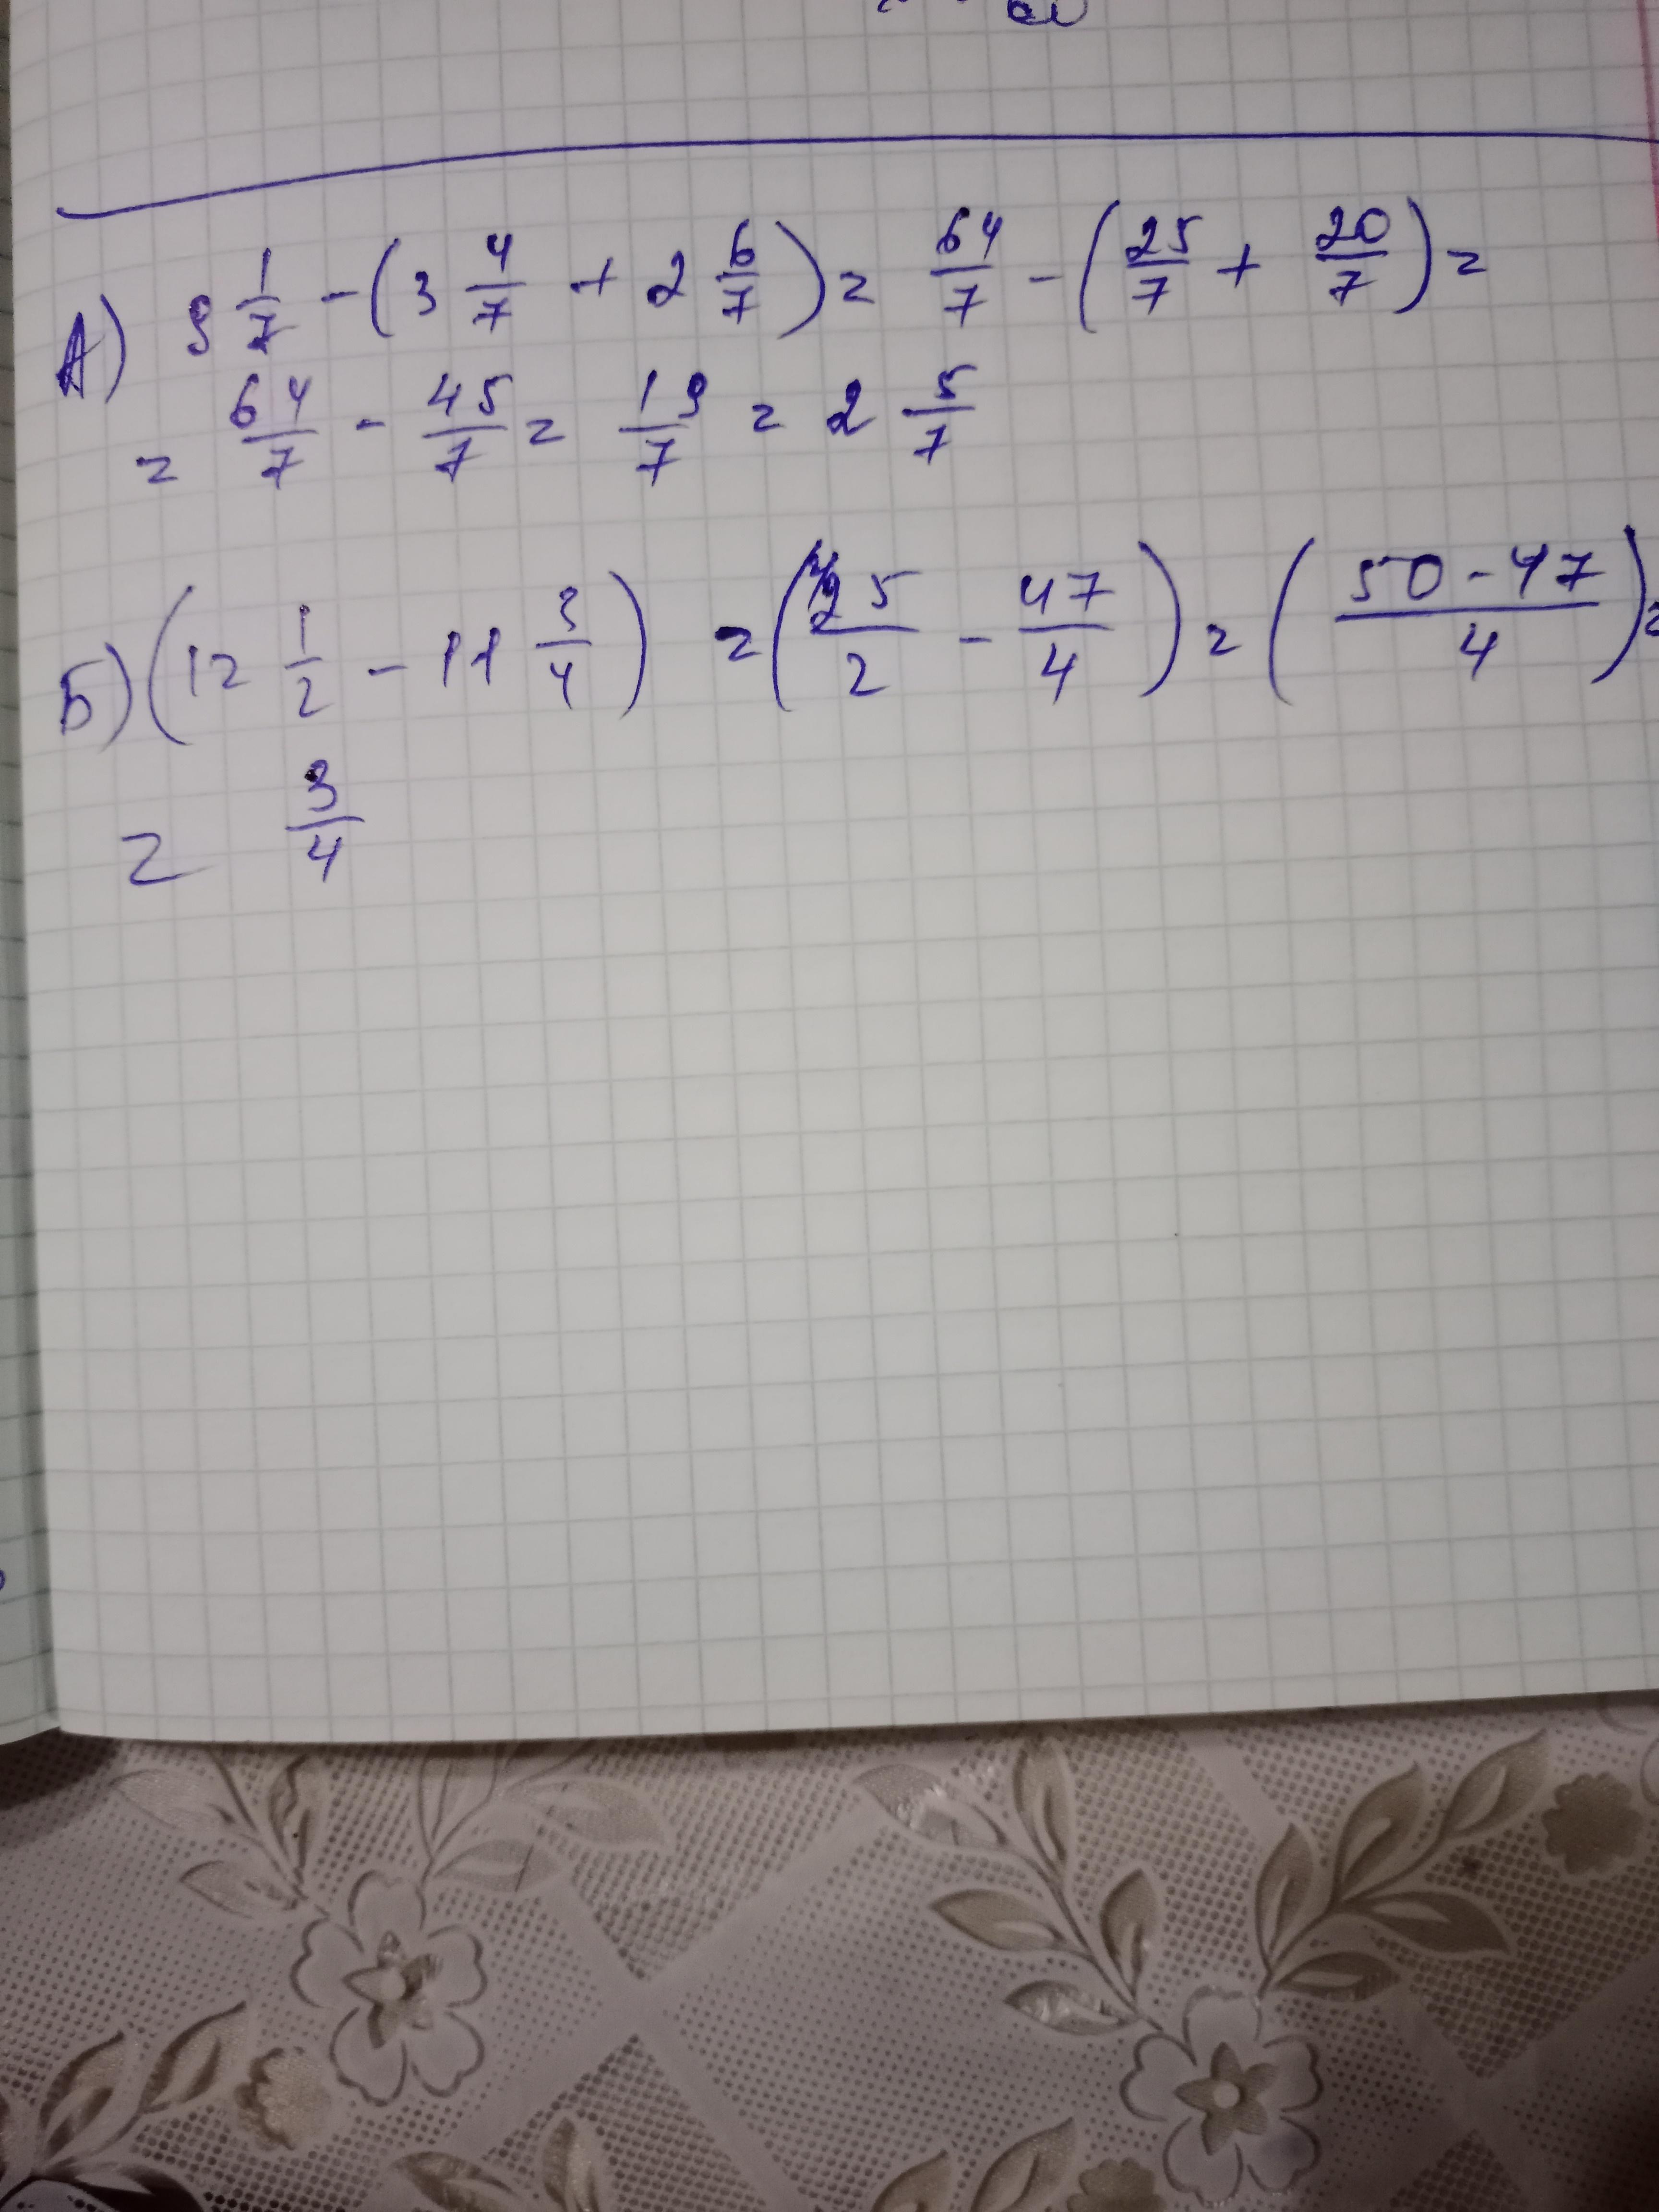 А) 9 1/7 - (3 4/7 + 2 6/7) = 64/7 - (25/7 + 20/7) =
= 64/7 - 45/7 = 19/7 = 2 5/7
Б) (12 1/2 - 11 3/4) = (25/2 - 47/4) = (50-47/4) =
= 3/4